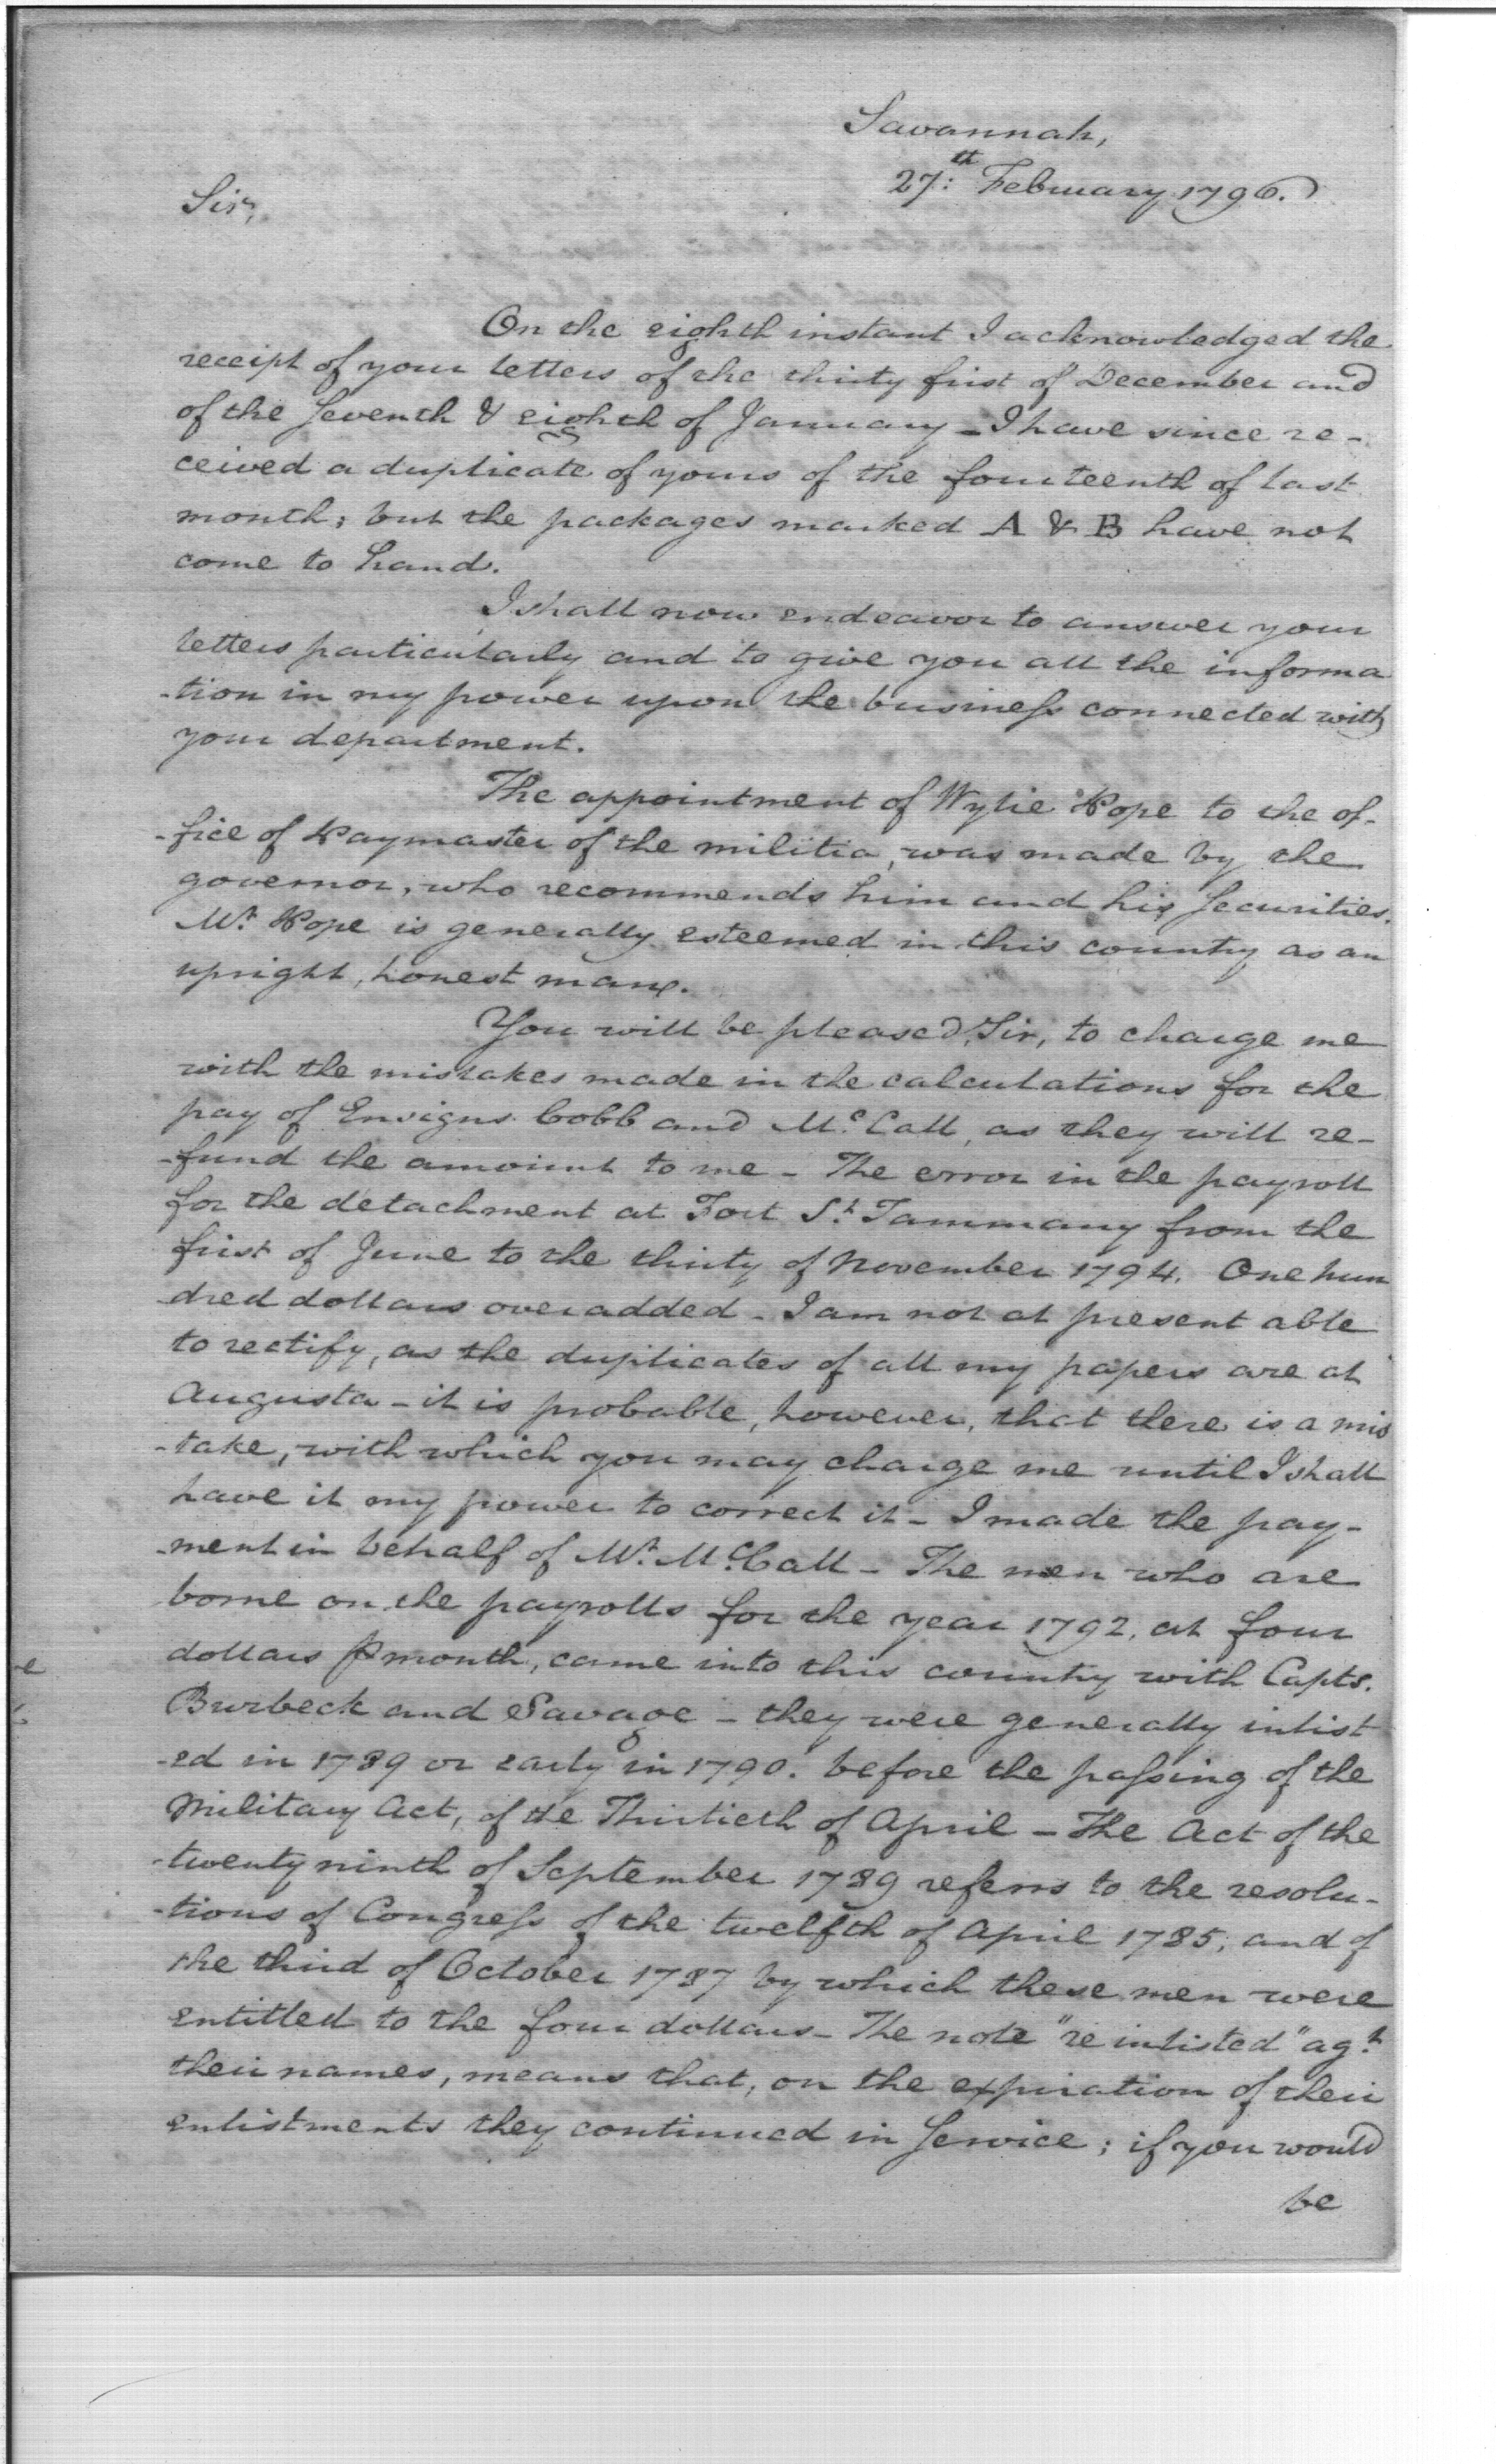 Savannah,
27th: February 1796.
Sir,
On the eighth instant I acknowledged the
receipt of your letters of the thirty first of December and
of the Seventh & eighth of January – I have since re-
ceived a duplicate of yours of the fourteenth of last
month; but the packages marked A & B have not
come to hand.
I shall now endeavor to answer your
letters particularly and to give you all the informa
-tion in my power upon the business connected with
your department.
The appointment of Wylie Pope to the of-
-fice of Paymaster of the militia, was made by the
governor, who recommends him and his Securities.
Mr. Pope is generally esteemed in this country as an
upright, honest man.
You will be pleased, Sir, to charge me
with the mistakes made in the calculations for the
pay of Ensigns Cobb and Mc.Call, as they will re-
-fund the amount to me – The error in the payroll
for the detachment at Fort St. Tammany from the
first of June to the thirty of November 1794. One hun
-dred dollars over added – I am not at present able
to rectify, as the duplicates of all my papers are at
Augusta – it is probable, however, that there is a mis
-take, with which you may charge me until I shall
have it my power to correct it – I made the pay-
-ment in behalf of Mr. Mc.Call – The men who are
borne on the payrolls for the year 1792, at four
dollars ⅌ month, came into this country with Capts.
Burbeck and Savage – they were generally inlist
-ed in 1789 or early in 1790. before the passing of the
Military Act, of the Thirtieth of April – The Act of the
twenty ninth of September 1789 refers to the resolu-
-tions of Congress of the twelfth of April 1785, and of
the third of October 1787 by which these men were
entitled to the four dollars – The note "re inlisted" agt.
their names, means that, on the expiration of their
enlistments they continued in Service; if you would
be